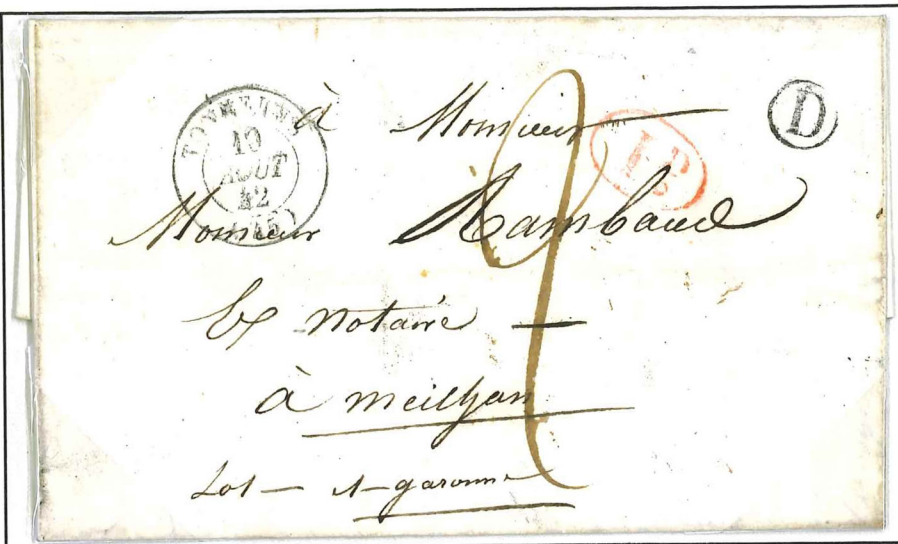 TONNEINS
10
AOUT
42
(45)
D
à Monsieur
Monsieur Rambaud
Ex notaire —
à meilhan
Lot — et — garonne
2